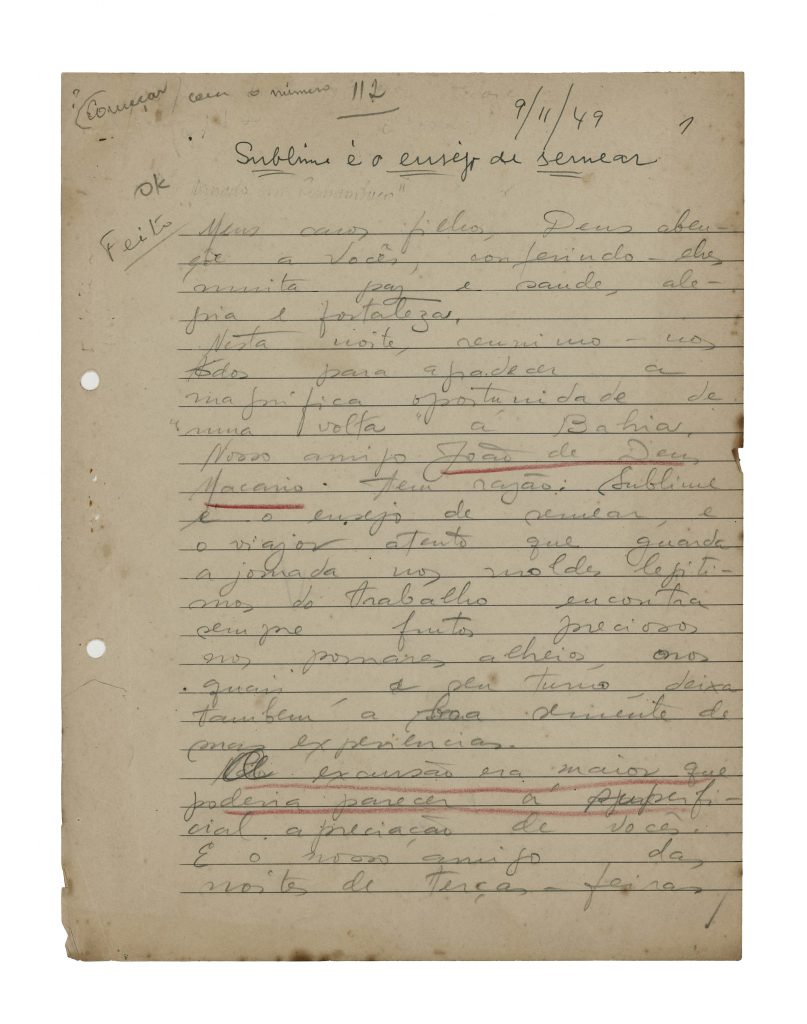 ? (Começar) com o número 112
9/11/49 1
Sublime é o ensêjo de semear
OK
Feito
Meus caros filhos, Deus aben-
çôe a vocês, conferindo-lhes
muita paz e saude, ale-
gria e fortaleza.
Nesta noite, reunimo-nos
todos para agradecer a
magnifica oportunidade de
"uma volta" á Bahia.
Nosso amigo João de Deus
Macario tem razão: Sublime
é o ensejo de semear e
o viajor atento que guarda
a jornada nos moldes legiti-
mos do trabalho encontra
sempre frutos preciosos
nos pomares alheios, nos
quais a seu turno, deixa
também a boa semente de
suas experiencias.
A excursão era maior que
poderia parecer á superfi-
cial apreciação de vocês.
E o nosso amigo das
noites de terças-feiras